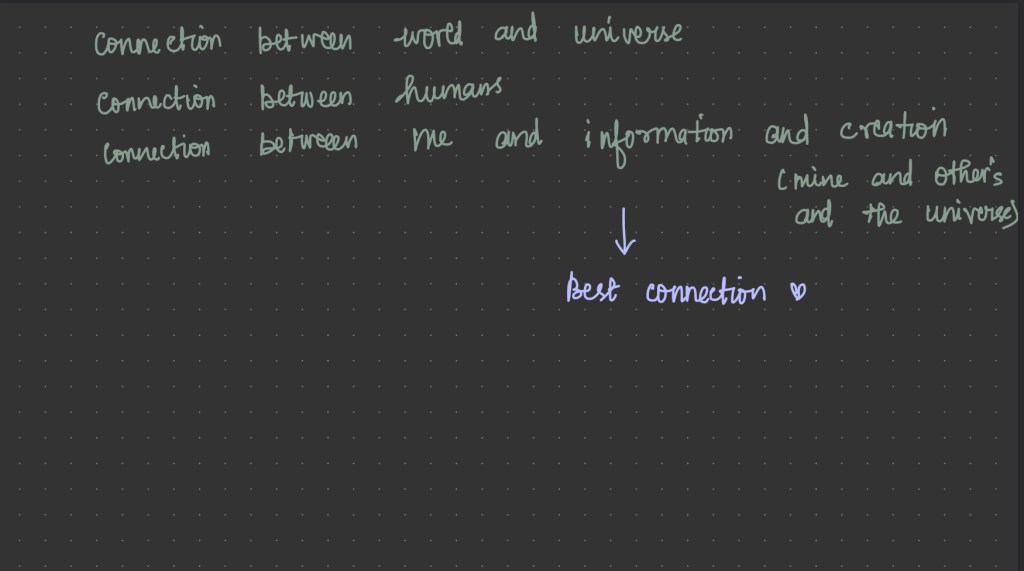 Connection between world and universe
Connection between humans
Connection between me and information and creation
(mine and other's
and the universe)
↓
Best connection ♡